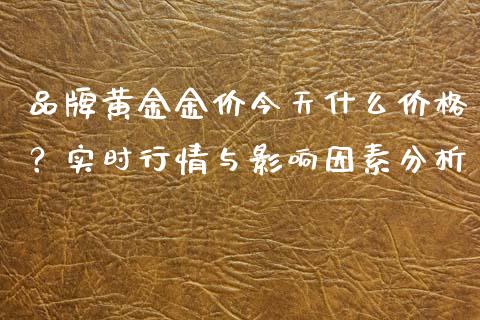 品牌黄金金价今天什么价格
？实时行情与影响因素分析